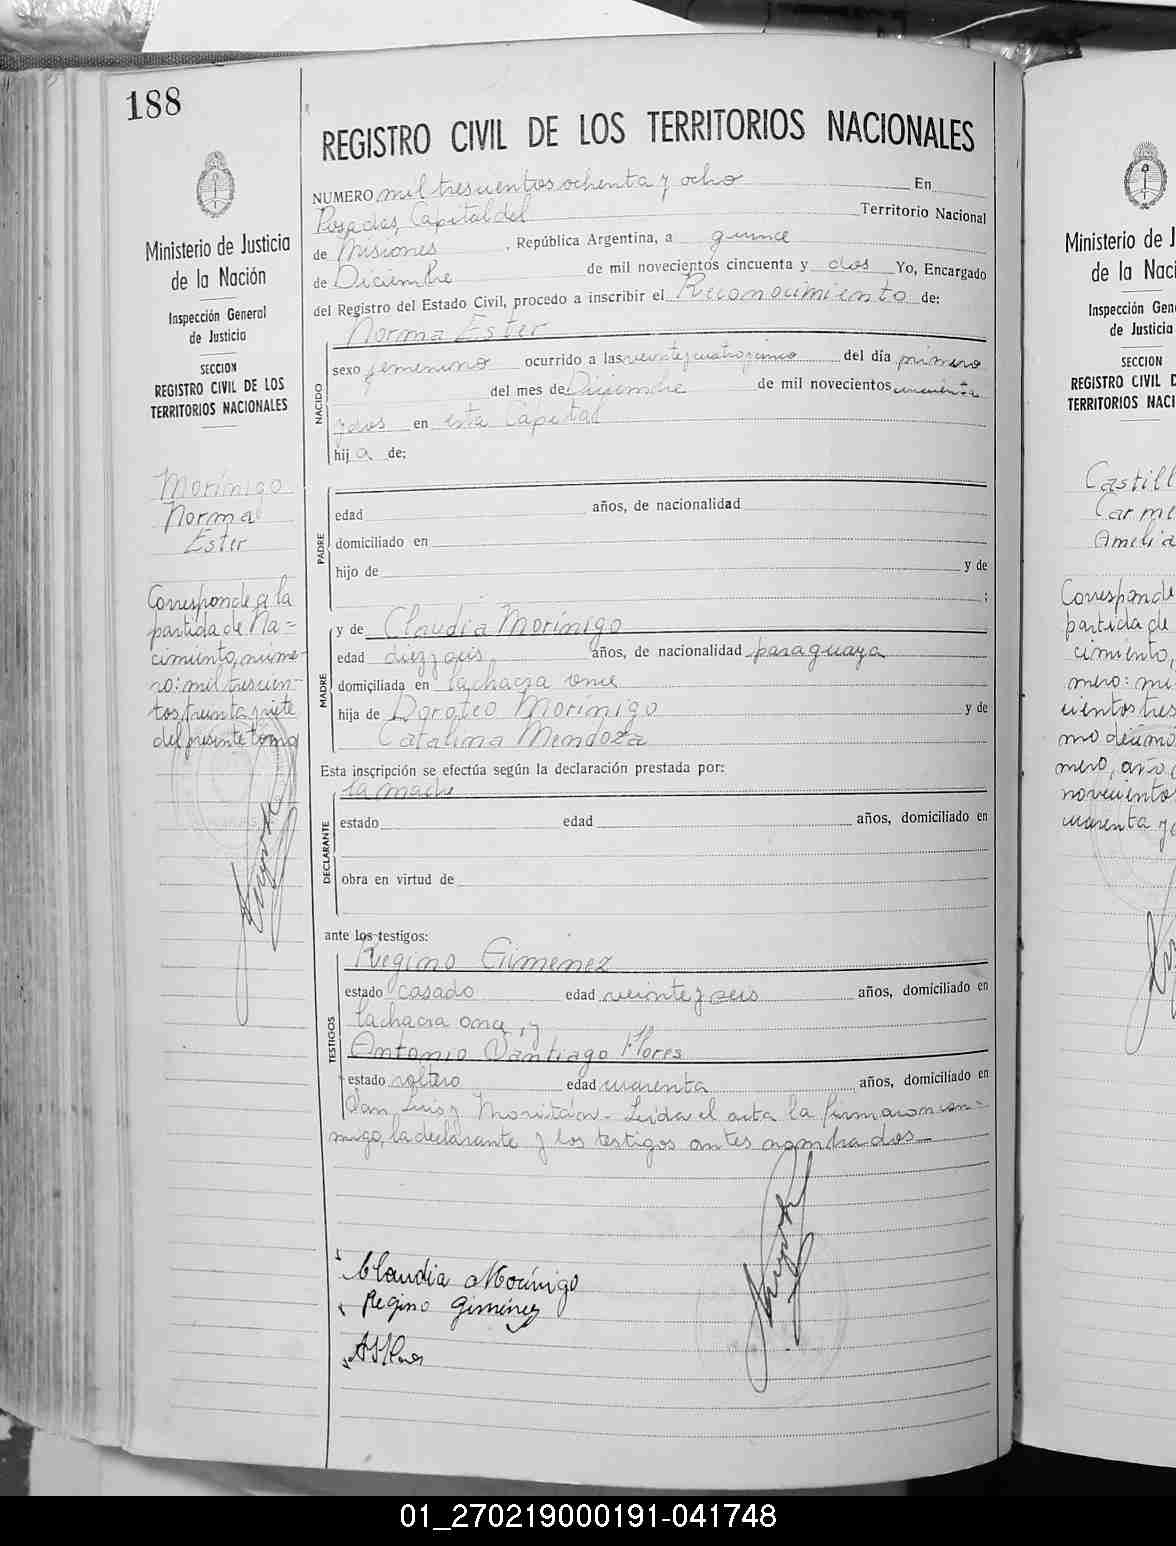 188
REGISTRO CIVIL DE LOS TERRITORIOS NACIONALES
Ministerio de Justicia
de la Nación
Inspección General
de Justicia
SECCION
REGISTRO CIVIL DE LOS
TERRITORIOS NACIONALES
Morínigo
Norma
Ester
Corresponde a la
partida de Na=
cimiento, nume-
ro: mil trescien-
tos treinta y siete
del presente tomo
NUMERO mil trescientos ochenta y ocho En
Posadas, Capital del Territorio Nacional
de Misiones, República Argentina, a quince
de Diciembre de mil novecientos cincuenta y dos Yo, Encargado
del Registro del Estado Civil, procedo a inscribir el Reconocimiento de:
Norma Ester
NACIDO
sexo femenino ocurrido a las veinte y cuatro y cinco del día primero
del mes de Diciembre de mil novecientos cincuenta
y dos en esta Capital
hija de:
PADRE
edad años, de nacionalidad
domiciliado en
hijo de y de
;
MADRE
y de Claudia Morínigo
edad años, de nacionalidad paraguaya
domiciliada en la chacra once
hija de Doroteo Morínigo y de
Catalina Mendoza
Esta inscripción se efectúa según la declaración prestada por:
la madre
DECLARANTE
estado edad años, domiciliado en
obra en virtud de
ante los testigos:
Regino Gimenez
TESTIGOS
estado casado edad veinte y seis años, domiciliado en
la chacra once, y
Antonio Santiago Flores
estado soltero edad cuarenta años, domiciliado en
San Luis y Moritán. Leida el acta la firmaron con-
migo, la declarante y los testigos antes nombrados
Claudia Morínigo
Regino Giménez
Ministerio de J
de la Naci
Inspección Gen
de Justicia
SECCION
REGISTRO CIVIL D
TERRITORIOS NACI
Castill
Carme
Amelia
Corresponde
partida de
cimiento,
mero: mi
cientos tres
mo décimo
mero, año
novecientos
cuarenta y
01_270219000191-041748